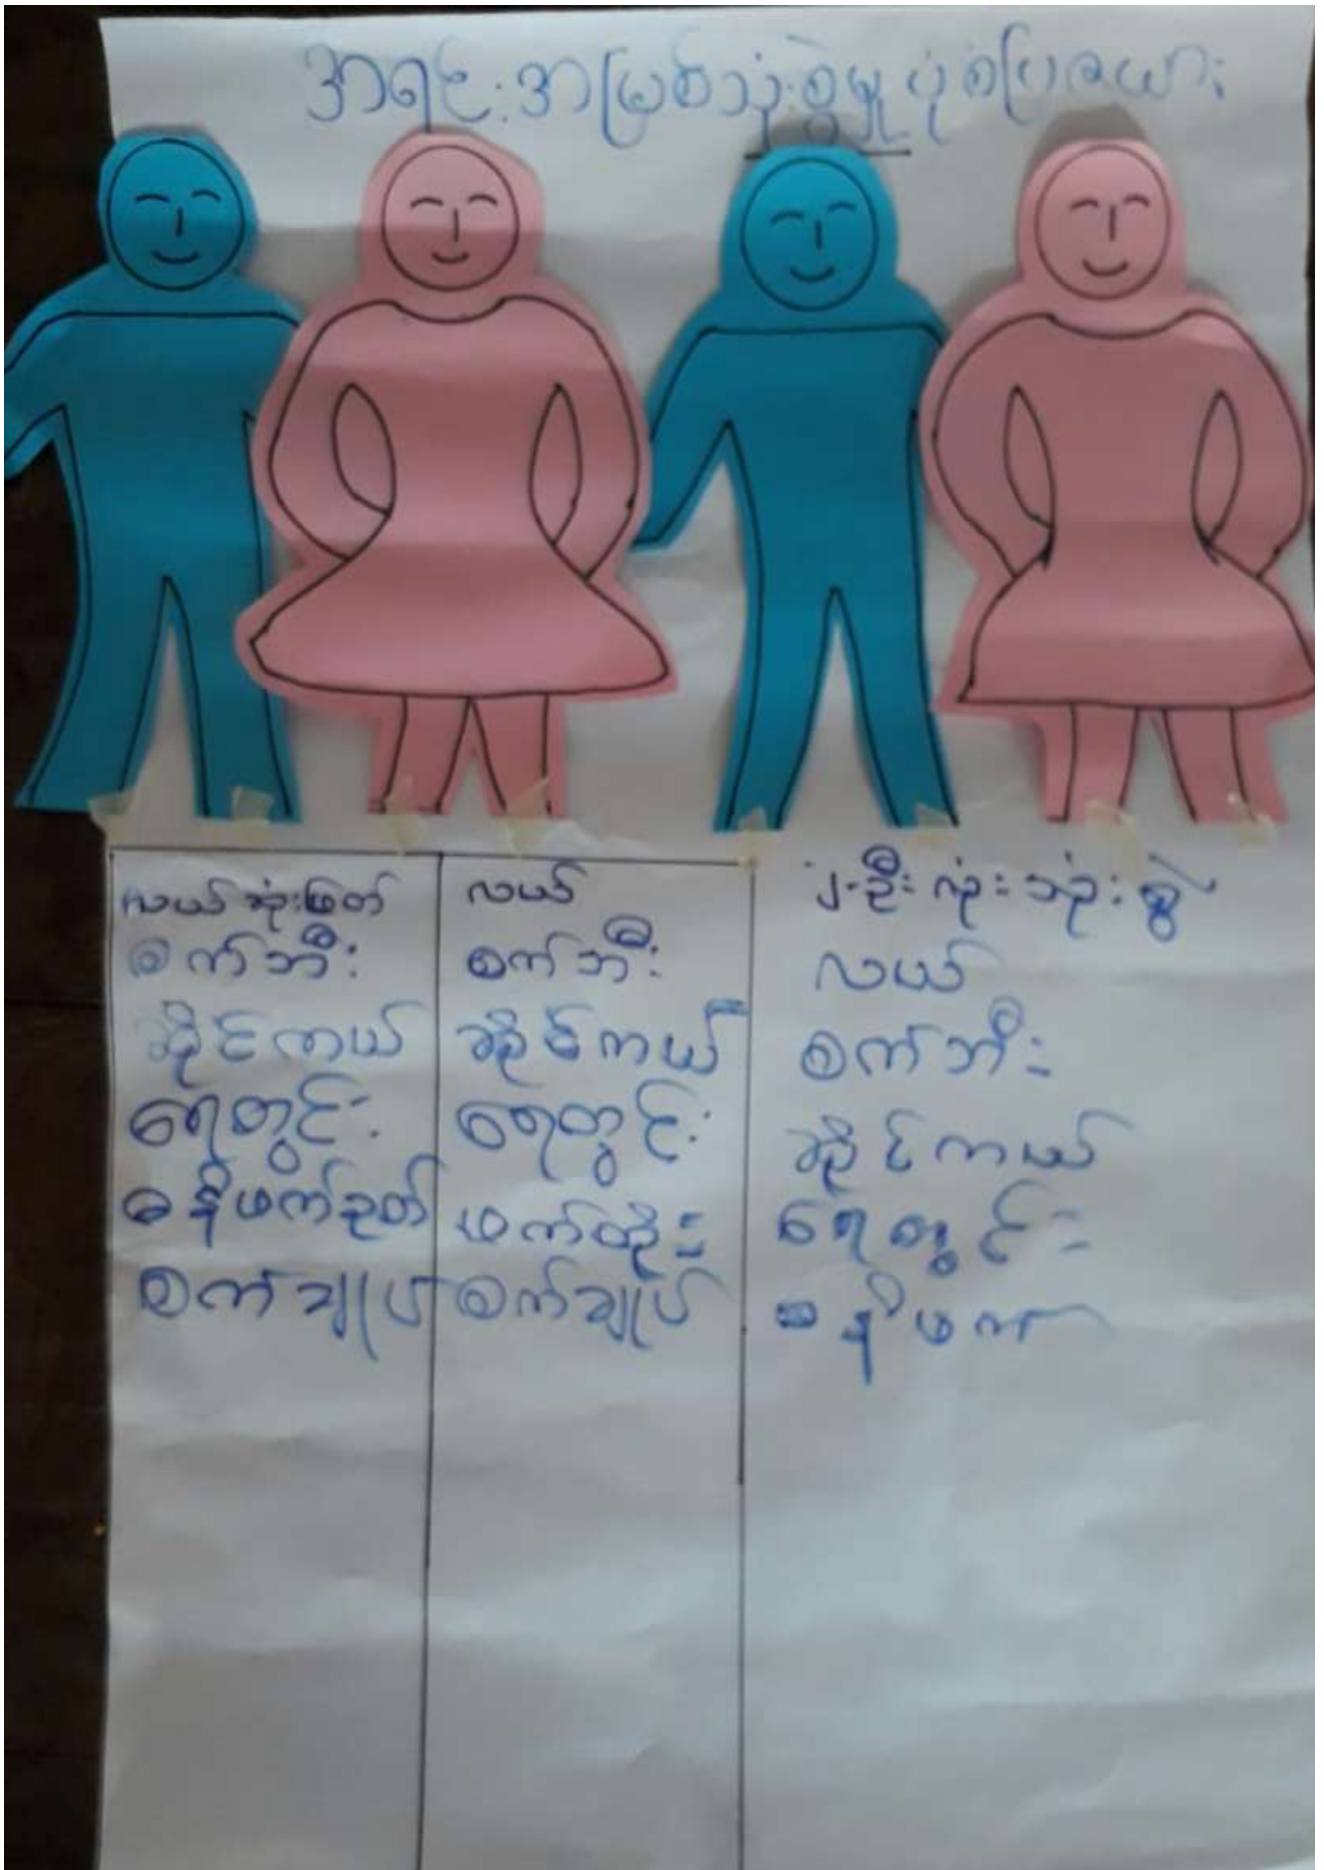 အရင်းအမြစ်သုံးစွဲမှု ပုံစံပြဇယား
လယ်ဆုံးဖြတ်
စက်ဘီး
ဆိုင်ကယ်
ရေတွင်း
ဓနိဖက်ခုတ်
စက်ချုပ်
လယ်
စက်ဘီး
ဆိုင်ကယ်
ရေတွင်း
ဖက်ထိုး
စက်ချုပ်
၂-ဦးလုံးသုံးစွဲ
လယ်
စက်ဘီး
ဆိုင်ကယ်
ရေတွင်း
ဓနိဖက်